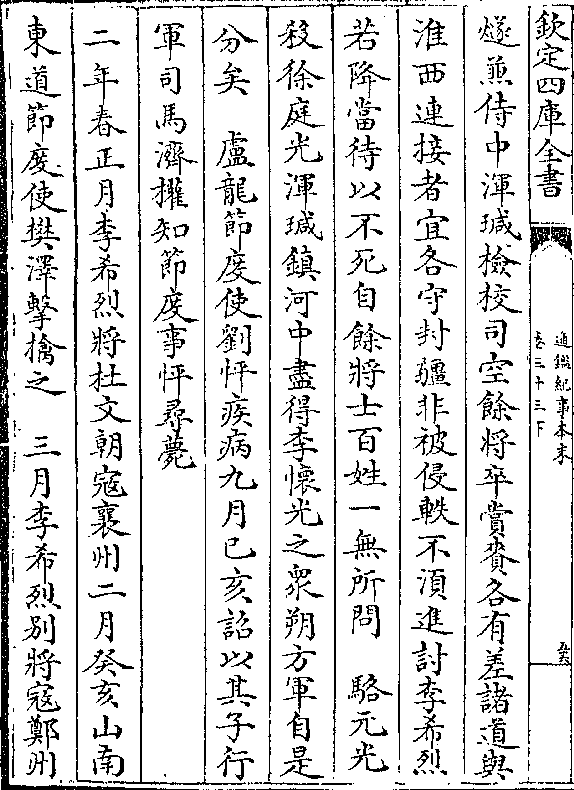 欽定四庫全書
通鑑紀事本末
卷三十三下
燧兼侍中渾瑊檢校司空餘將卒賞賚各有差諸道與
淮西連接者宜各守封疆非被侵軼不須進討李希烈
若降當待以不死自餘將士百姓一無所問　駱元光
殺徐庭光渾瑊鎮河中盡得李懷光之衆朔方軍自是
分矣　盧龍節度使劉怦疾病九月己亥詔以其子行
軍司馬濟權知節度事怦尋薨
二年春正月李希烈將杜文朝寇襄州二月癸亥山南
東道節度使樊澤擊擒之　三月李希烈別將寇鄭州